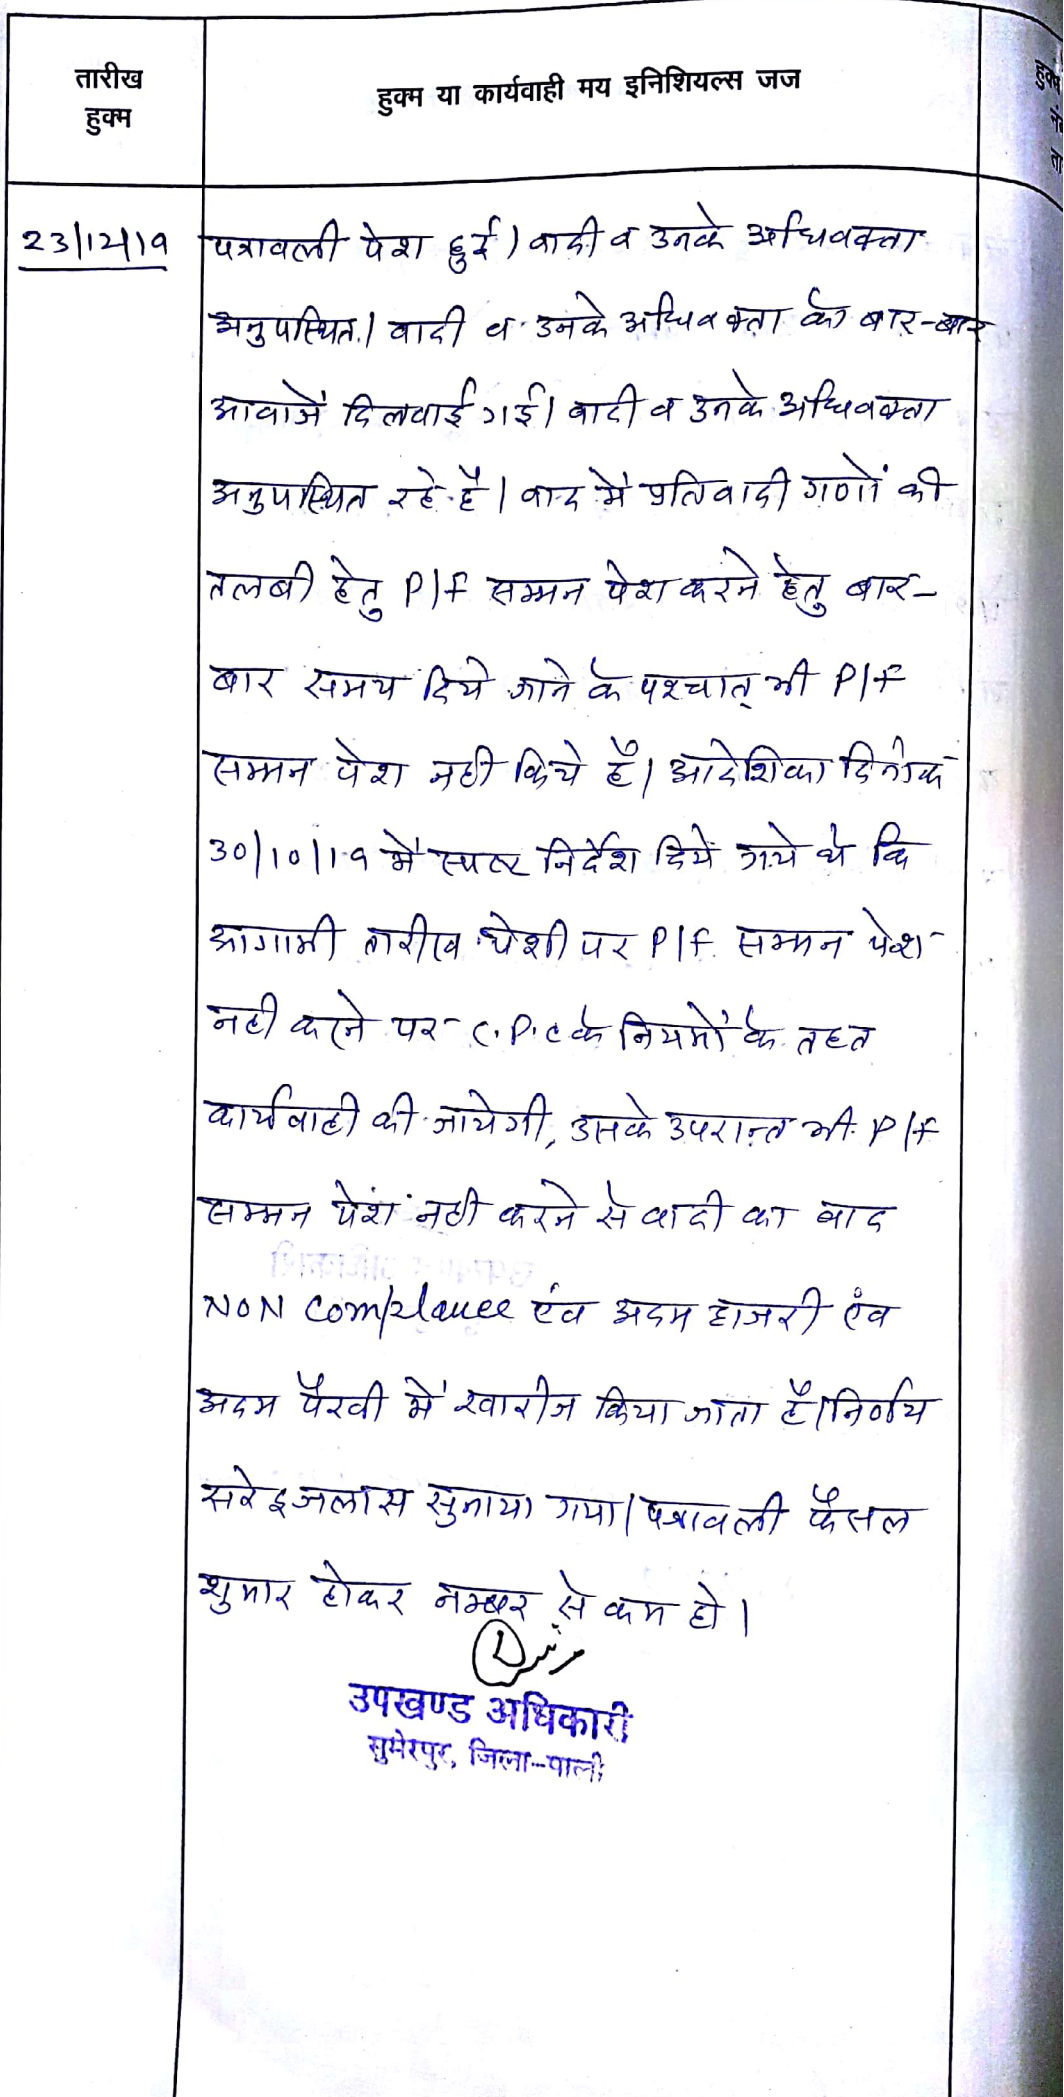 तारीख
हुक्म
हुक्म या कार्यवाही मय इनिशियल्स जज
23/12/19
पत्रावली पेश हुई। वादी व उनके अधिवक्ता
अनुपस्थित। वादी व उनके अधिवक्ता को बार-बार
आवाजें दिलवाई गई। वादी व उनके अधिवक्ता
अनुपस्थित रहे है। वाद में प्रतिवादी गणों की
तलबी हेतु P/F सम्मन पेश करने हेतु बार-
बार समय दिये जाने के पश्चात् भी P/F
सम्मन पेश नही किये है। आदेशिका दिनांक
30/10/19 में स्पष्ट निर्देश दिये गये थे कि
आगामी तारीख पेशी पर P/F सम्मन पेश
नही करने पर C.P.C के नियमों के तहत
कार्यवाही की जायेगी, उसके उपरान्त भी P/F
सम्मन पेश नही करने से वादी का वाद
NON Complaucee एंव अदम हाजरी एंव
अदम पैरवी में खारीज किया जाता है। निर्णय
सरे इजलास सुनाया गया। पत्रावली फैसल
शुमार होकर नम्बर से कम हो।
उपखण्ड अधिकारी
सुमेरपुर, जिला-पाली